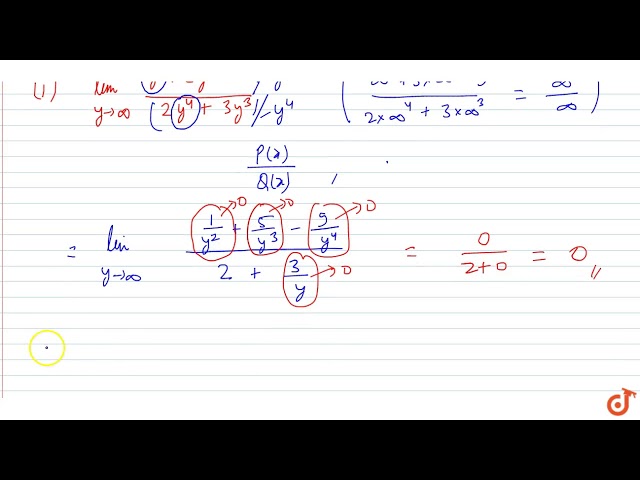 (1) lim y→∞ / (2y⁴ + 3y³)/-y⁴ ( / 2×∞⁴ + 3×∞³ = ∞/∞ )
P(x)/Q(x) ,
= lim y→∞ (1/y² →0 + 5/y³ →0 - 9/y⁴ →0) / (2 + 3/y →0) = 0/(2+0) = 0,,